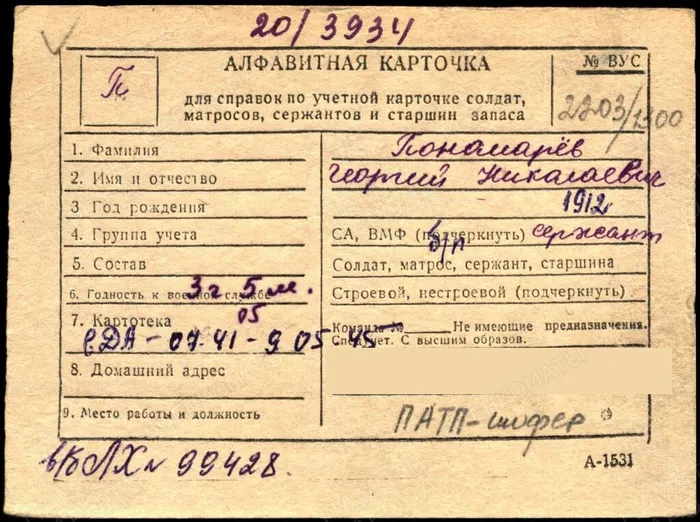 20/3934
П
АЛФАВИТНАЯ КАРТОЧКА
для справок по учетной карточке солдат,
матросов, сержантов и старшин запаса
№ ВУС
2203/1300
1. Фамилия Пономарёв
2. Имя и отчество Георгий Николаевич
3 Год рождения 1912
4. Группа учета СА, ВМФ (подчеркнуть) сержант
б/п
5. Состав Солдат, матрос, сержант, старшина
6. Годность к военной службе 3г 5м. Строевой, нестроевой (подчеркнуть)
05
7. Картотека Команда № Не имеющие предназначения.
Следует. С высшим образов.
07.41 - 9 05 45
8. Домашний адрес
9. Место работы и должность ПАТП-шофер
99428.
А-1531